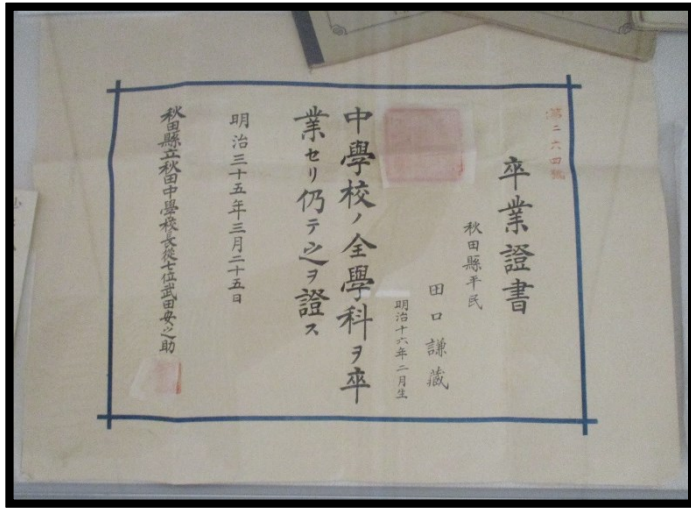 第二六四號
卒業證書
秋田縣平民
田口謙藏
明治十六年二月生
中學校ノ全學科ヲ卒
業セリ仍テ之ヲ證ス
明治三十五年三月二十五日
秋田縣立秋田中學校長從七位武田安之助